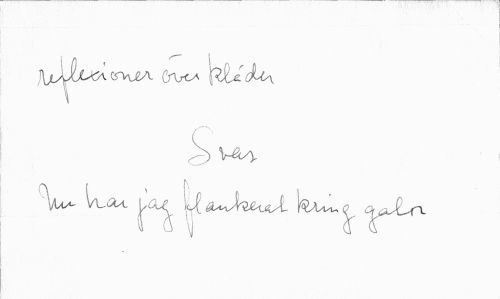 reflexioner över kläder
Svar
Nu har jag flankerat kring galon